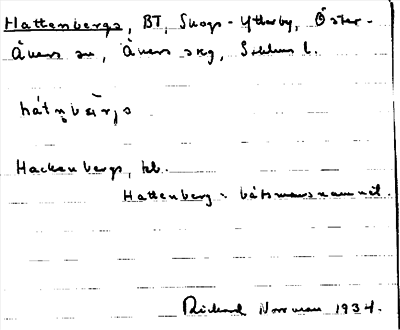 Hattenbergs, BT, Skogs-Ytterby, Öster-
Åkers sn, Åkers skg, Sthlms l.
Hackenbergs, kb.
Hattenberg = båtsmansnamnet.
Rickard Norrman 1934.